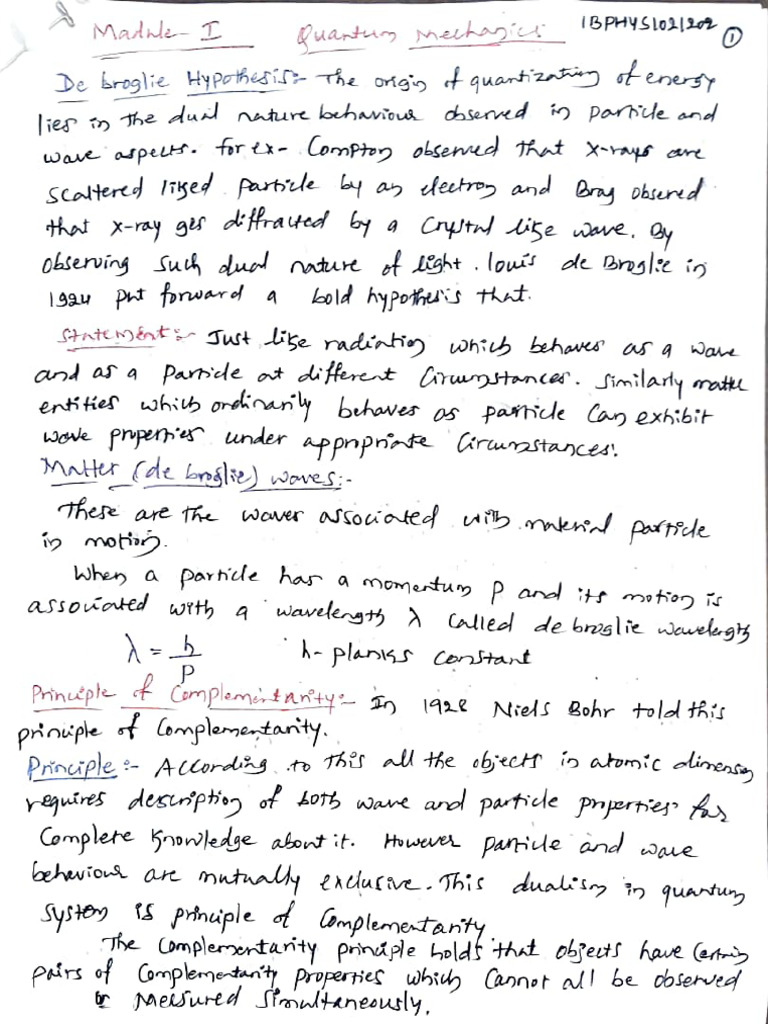 Module-I Quantum Mechanics 1BPHYS102/202 1
De broglie Hypothesis:- The origin of quantization of energy
lies in the dual nature behaviour observed in particle and
wave aspects. for ex- Compton observed that x-rays are
scattered liked particle by an electron and Brag obsered
that x-ray gets diffracted by a Crystal like wave. By
observing such dual nature of light. louis de Broglie in
1924 put forward a bold hypothesis that.
Statement:- Just like radiation which behaves as a wave
and as a particle at different Circumstances. Similarly matter
entities which ordinarily behaves as particle Can exhibit
wave properties under appropriate Circumstances.
Matter (de broglie) waves:-
These are the waves associated with material particle
in motion.
When a particle has a momentum p and its motion is
associated with a wavelength λ called de broglie wavelength
λ = h/p h- planks constant
Principle of Complementarity:- In 1928 Niels Bohr told this
principle of Complementarity.
Principle:- According to this all the objects in atomic dimension
requires description of both wave and particle properties for
Complete Knowledge about it. However particle and wave
behaviour are mutually exclusive. This dualism in quantum
system is principle of Complementarity
The Complementarity principle holds that objects have Certain
pairs of Complementarity properties which Cannot all be observed
or Measured Simultaneously.